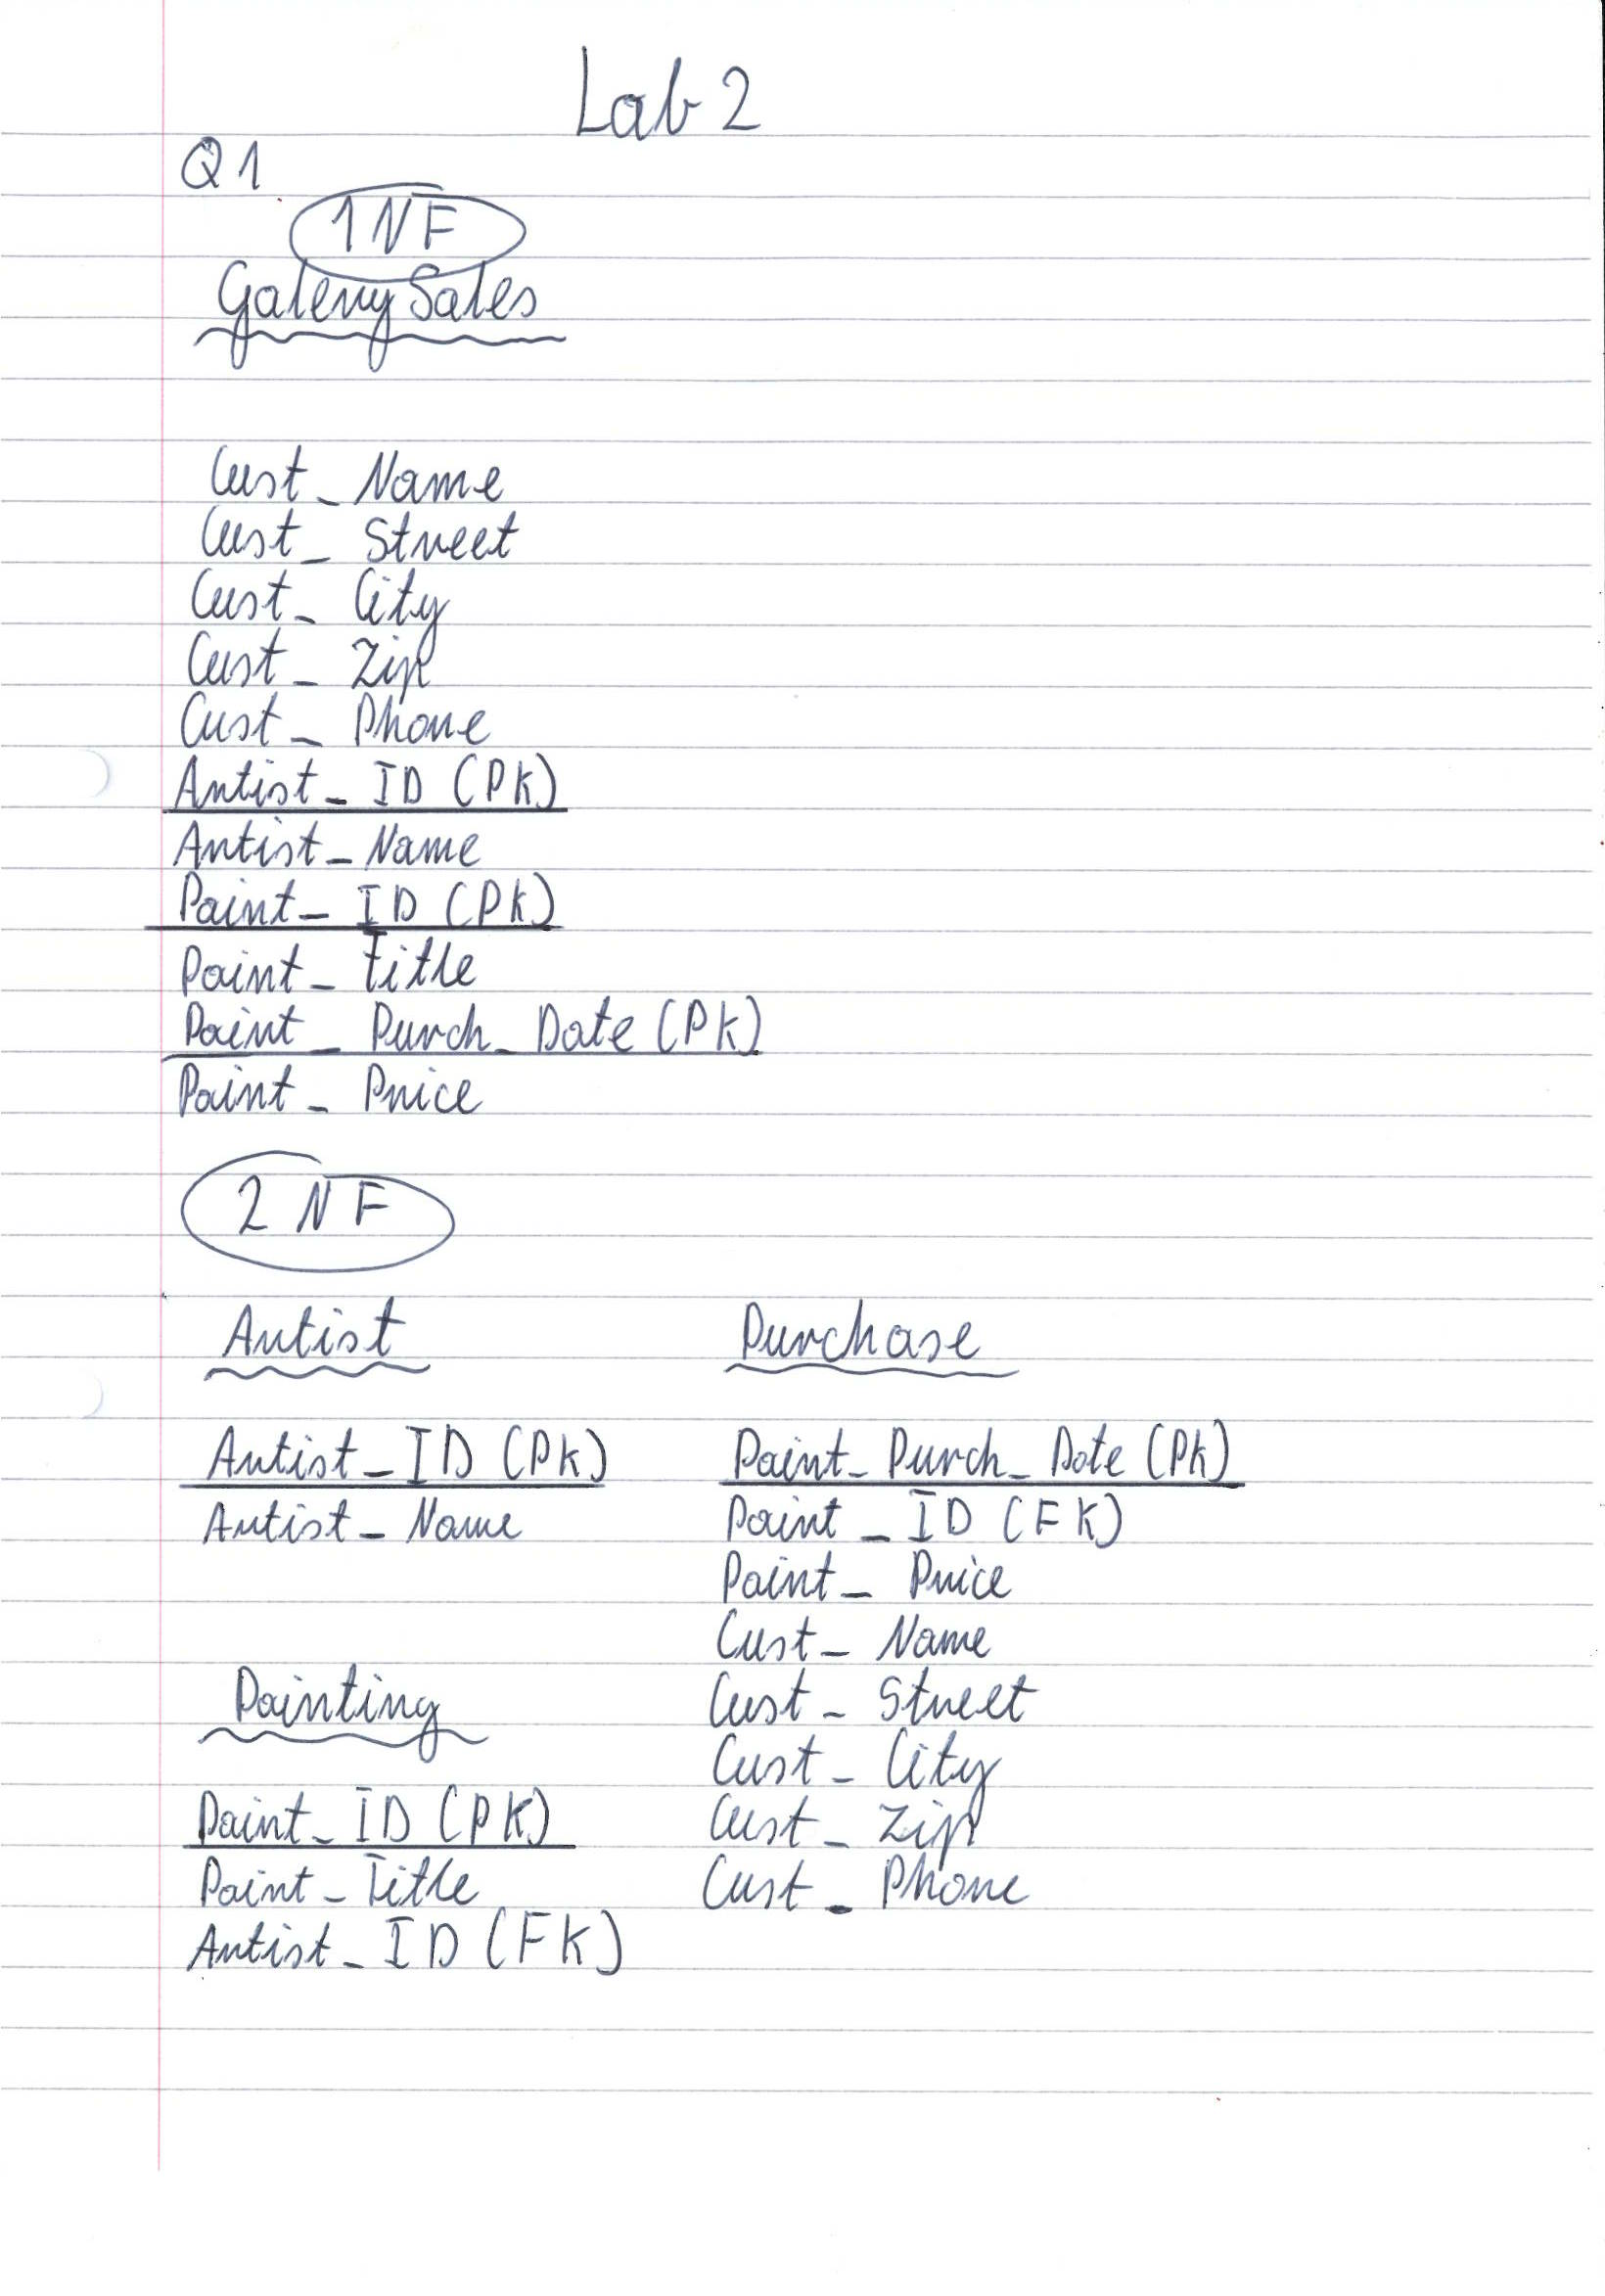 Lab 2
Q1
1NF
Gallery Sales
Cust_Name
Cust_Street
Cust_City
Cust_Zip
Cust_Phone
Artist_ID (PK)
Artist_Name
Paint_ID (PK)
Paint_Title
Paint_Purch_Date (PK)
Paint_Price
2NF
Artist
Artist_ID (PK)
Artist_Name
Painting
Paint_ID (PK)
Paint_Title
Artist_ID (FK)
Purchase
Paint_Purch_Date (PK)
Paint_ID (FK)
Paint_Price
Cust_Name
Cust_Street
Cust_City
Cust_Zip
Cust_Phone